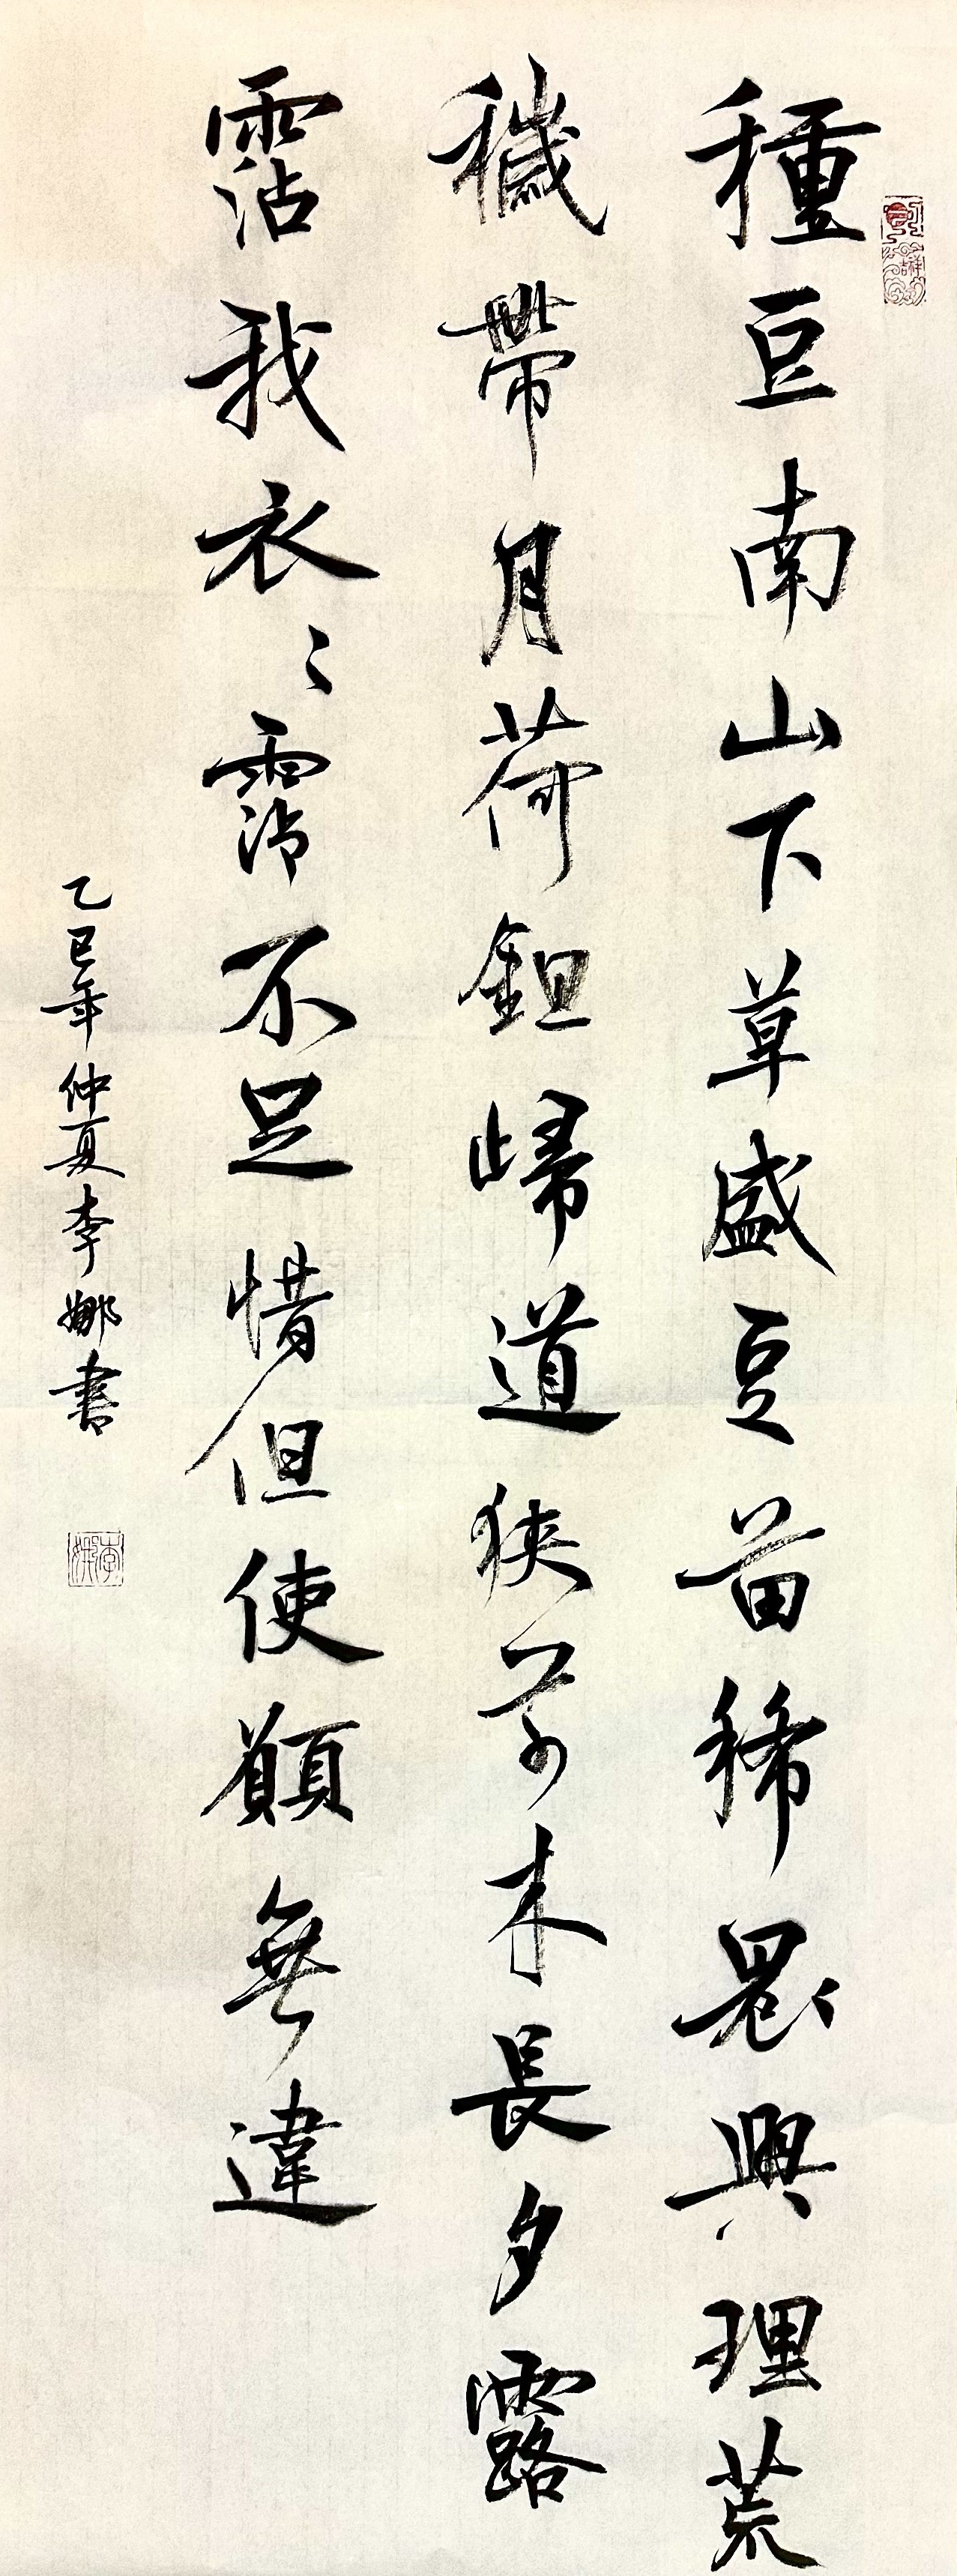 種豆南山下草盛豆苗稀晨興理荒
穢帶月荷鉏歸道狹草木長夕露
霑我衣〻霑不足惜但使願無違
乙巳年仲夏李娜書
李娜